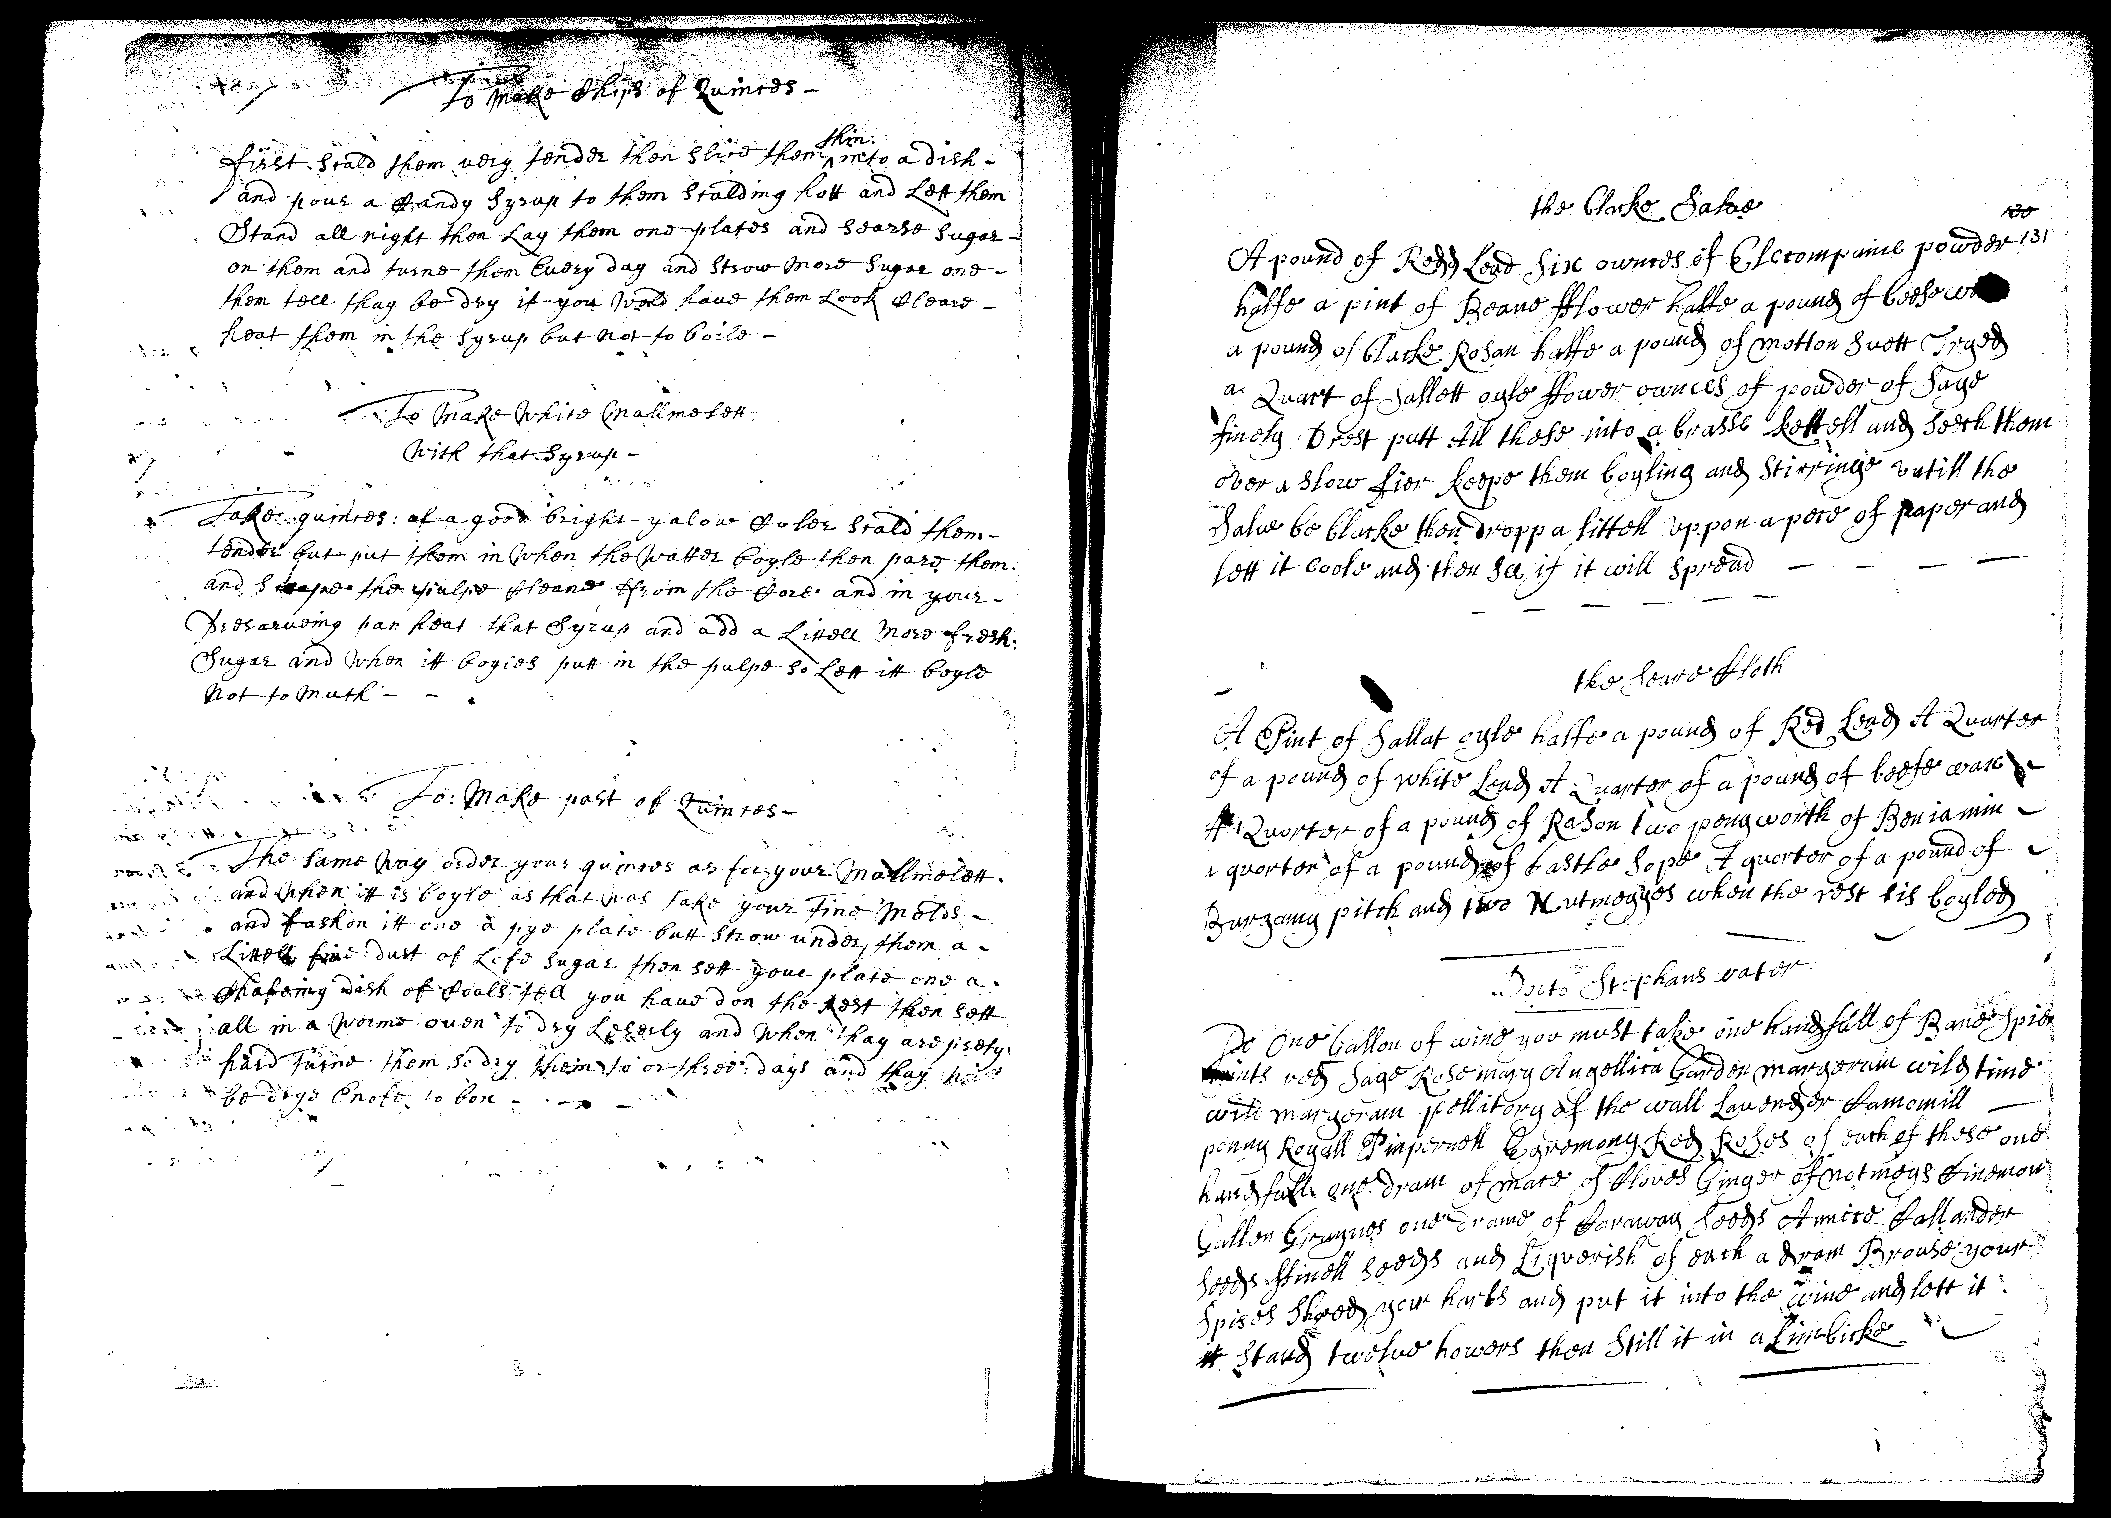 To Make Chips of Quinces -
first scald them very tender then slice them thin: into a dish -
and pour a Candy Syrup to them scalding hott and Lett them
Stand all night then Lay them one plates and searse Sugar -
on them and turne them Every day and strow More Sugar one -
them tell thay be dry if you Wold have them Look Cleare -
heat them in the Syrup but not to boile -
To Make White Mallmelett
With that Syrup -
Take: quinces: of a good bright yalow Culer scald them -
tender but put them in When the Watter boyle then pare them:
and scrape the pulpe Cleane from the Core and in your -
Presarveing pan heat that Syrup and add a Littell More fresh:
Sugar and When itt boyles putt in the pulpe so Lett itt boyle
Not to Much -
To: Make past of Quinces -
The same Way order your quinces as for your Mallmelett.
and When itt is boyle as that was take your Fine Molds -
and fashon itt one a pye plate butt strow under them a -
Littell fine dust of Lofe Sugar then sett your plate one a
Chafeing dish of Coals tell you have don the Rest then sett
all in a Worme oven to dry Leserly and When thay are prety
hard Turne them so dry them to or three days and thay
be drye Enofe to box -
the Blacke Salve
130
131
A pound of Redd Lead Six ownces of Elecompaine powder
halfe a pint of Beane fflower halfe a pound of beese
a pound of Blacke Rosan halfe a pound of Motton Suett Tryed
a Quart of Sallett oyle ffower ownces of powder of Sage
finely Drest putt All these into a brasse kettell and Seeth them
over a slow fier keepe them boyling and Stirringe untill the
Salve be blacke then dropp a littell uppon a pece of paper and
lett it Coole and then See if it will Spread
the Seare Cloth
A Pint of Sallat oyle halfe a pound of Red Lead A Quarter
of a pound of white Lead A Quarter of a pound of beese wax
A Quorter of a pound of Rason two penyworth of Beniamin
a quorter of a pound of Castle Sope A quorter of a pound of
Burgamy pitch and two Nutmegges when the rest tis boyled
Docto Stephans water
To One Gallon of wine you must take one handfull of
red Sage Rosemary Angellica Garden margeram wild time
wild margeram pellitory of the wall Lavender Camomill
penny Royall Pimpernell Egremony Red Roses of each of these one
handfull one dram of mace of Cloves Ginger of notmegs Sinemon
Gallen Graynes one drame of Caraway Seeds Annice Callander
Seeds ffinell Seeds and Liquerish of each a dram Browse your
Spises Shred your harbs and put it into the wine and lett it
it Stand twelve howers then Still it in a Limbicke